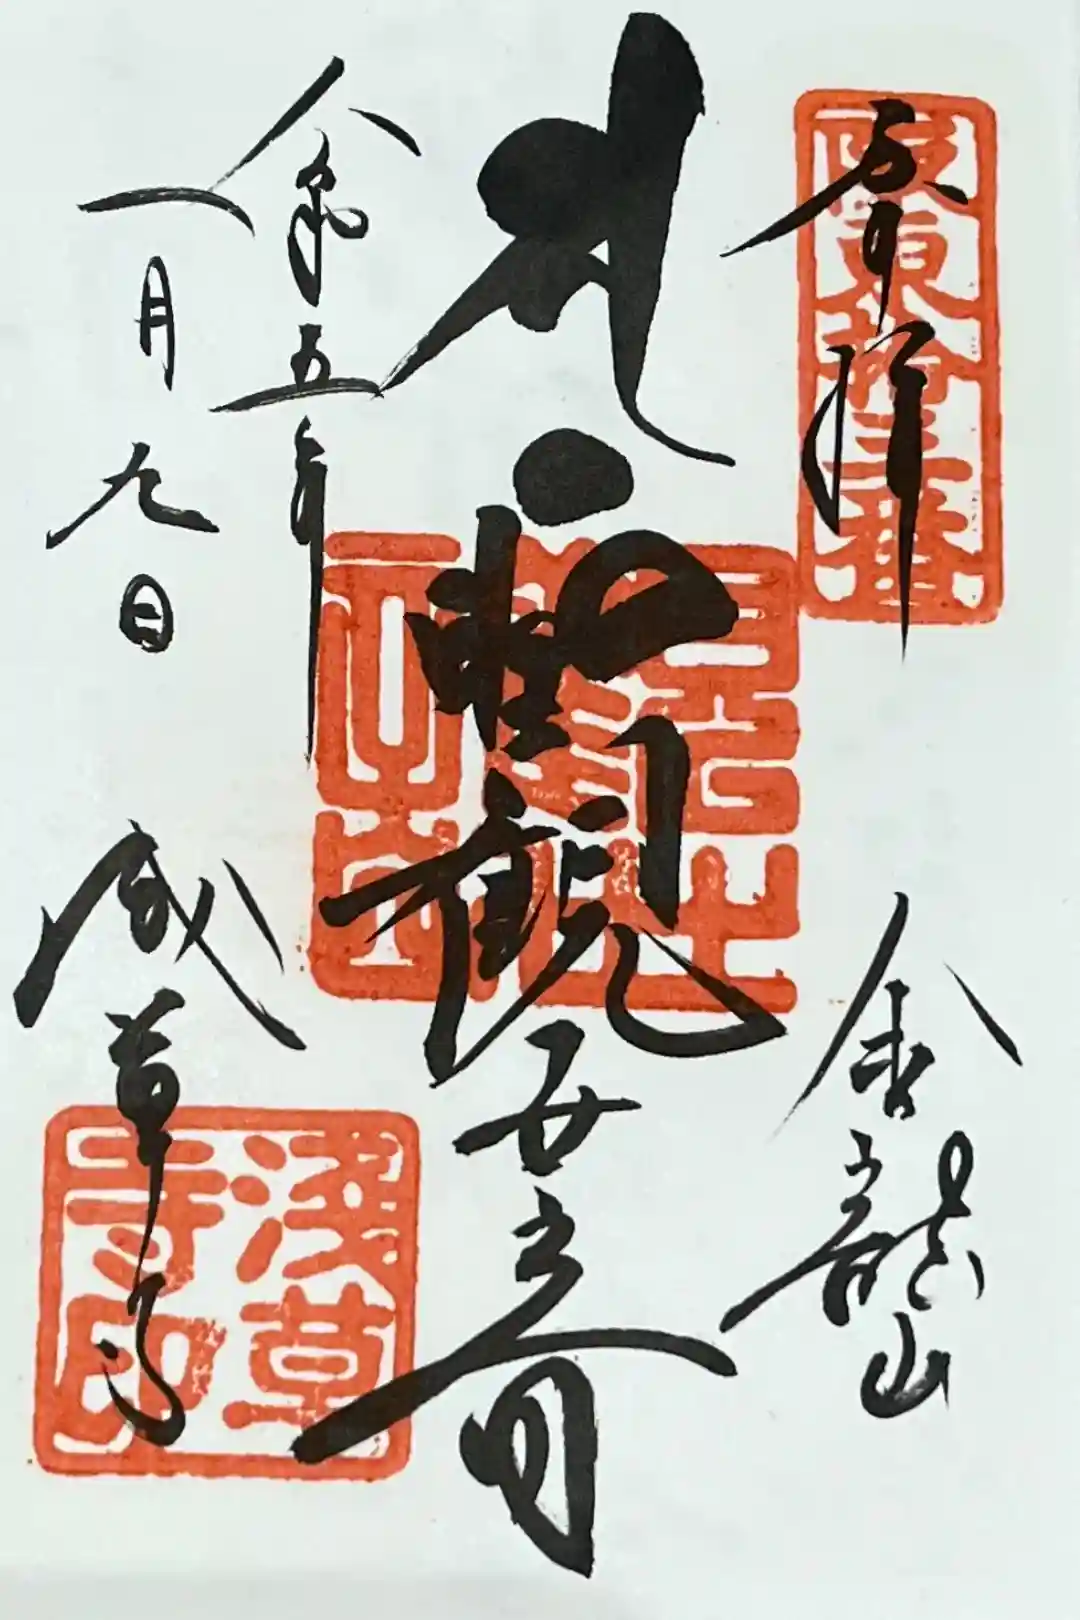 奉拝
坂東拾三番
金龍山
聖観世音
令和五年
一月九日
浅草寺
淺草
寺印